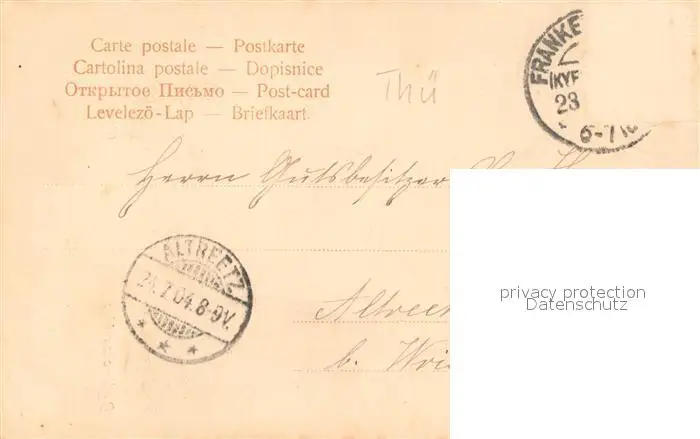 Carte postale — Postkarte
Cartolina postale — Dopisnice
Открытое Письмо — Post-card
Levelezö-Lap — Briefkaart.
Thü
FRANKE
(KYF
23
6-7
Herrn Gutsbesitzer
ALTREETZ
7.04.8-9V.
Altree
b. Wri
privacy protection
Datenschutz